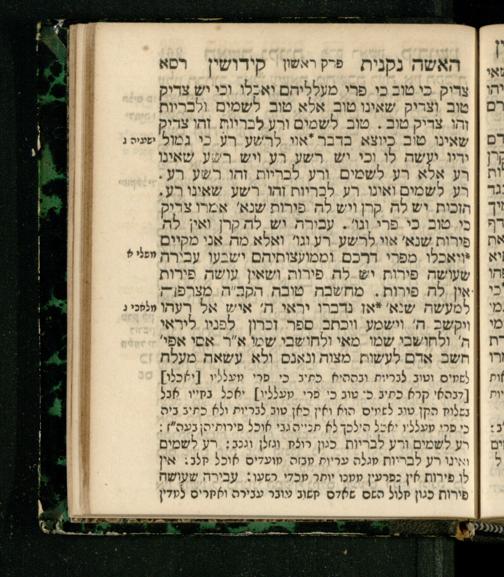 האשה נקנית פרק ראשון קידושין רסא
צדיק כי טוב כי פרי מעלליהם יאכלו וכי יש צדיק
טוב וצדיק שאינו טוב אלא טוב לשמים ולבריות
זהו צדיק טוב. טוב לשמים ורע לבריות זהו צדיק
שאינו טוב כיוצא בדבר אוי לרשע רע כי גמול
ישעיה ג
ידיו יעשה לו וכי יש רשע רע ויש רשע שאינו
רע אלא רע לשמים ורע לבריות זהו רשע רע.
רע לשמים ואינו רע לבריות זהו רשע שאינו רע.
הזכות יש לה קרן ויש לה פירות שנא' אמרו צדיק
כי טוב כי פרי וגו'. עבירה יש לה קרן ואין לה
פירות שנא' אוי לרשע רע וגו' ואלא מה אני מקיים
ויאכלו מפרי דרכם וממועצותיהם ישבעו עבירה
משלי א
שעושה פירות יש לה פירות ושאין עושה פירות
אין לה פירות. מחשבה טובה הקב"ה מצרפה
למעשה שנא' אז נדברו יראי ה' איש אל רעהו
מלאכי ג
ויקשב ה' וישמע ויכתב ספר זכרון לפניו ליראי
ה' ולחושבי שמו מאי ולחושבי שמו א"ר אסי אפי'
חשב אדם לעשות מצוה ונאנס ולא עשאה מעלה
לשמים וטוב לבריות ובההיא כתיב כי פרי מעלליו [יאכלו]
כי פרי מעלליו יאכל
רע לשמים ורע לבריות כגון רוצח וגזלן וגנב: רע לשמים
ואינו רע לבריות מגלה עריות
לו פירות אין נפרעין ממנו יותר מכדי רשעו: עבירה שעושה
פירות כגון חלול השם שאדם חשוב עובר עבירה ואחרים למדין